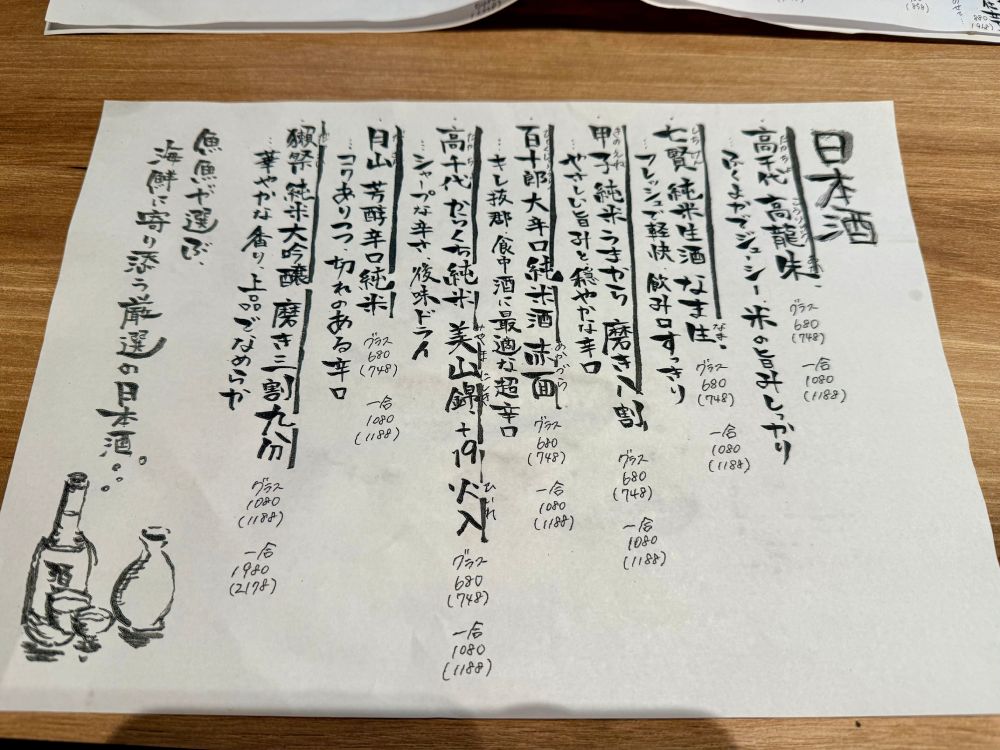 日本酒
高千代 高龍味
ふくよかでジューシー 米の旨みしっかり
グラス
680
(748)
一合
1080
(1188)
しちけん
七賢 純米生酒 なま生
なま
フレッシュで軽快 飲み口すっきり
グラス
680
(748)
一合
1080
(1188)
きのえね
甲子 純米 うまから 磨き八割
やさしい旨みと穏やかな辛口
グラス
680
(748)
一合
1080
(1188)
百十郎 大辛口純米酒 赤面
あかづら
キレ抜群、食中酒に最適な超辛口
グラス
680
(748)
一合
1080
(1188)
たかちよ
高千代 からくち純米 美山錦、+19 火入
みやまにしき
ひいれ
シャープな辛さ、後味ドライ
グラス
680
(748)
一合
1080
(1188)
月山 芳醇辛口純米
コクありつつ切れのある辛口
グラス
680
(748)
一合
1080
(1188)
獺祭 純米大吟醸 磨き三割九分
華やかな香り、上品でなめらか
グラス
1080
(1188)
一合
1980
(2178)
魚魚やが選ぶ
海鮮に寄り添う厳選の日本酒
酒
(1188)
(858)
880
(968)